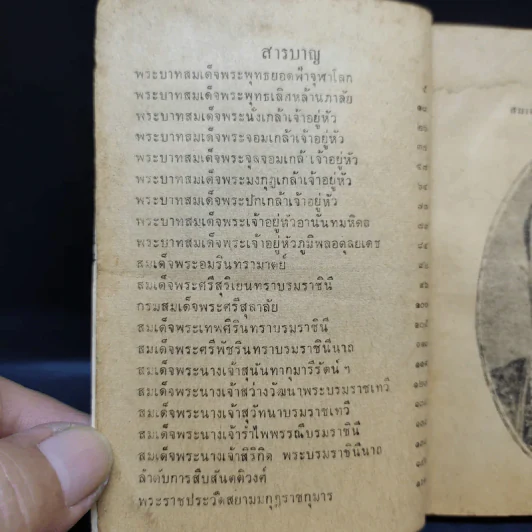 สารบาญ
พระบาทสมเด็จพระพุทธยอดฟ้าจุฬาโลก
พระบาทสมเด็จพระพุทธเลิศหล้านภาลัย
พระบาทสมเด็จพระนั่งเกล้าเจ้าอยู่หัว
พระบาทสมเด็จพระจอมเกล้าเจ้าอยู่หัว
พระบาทสมเด็จพระจุลจอมเกล้าเจ้าอยู่หัว
พระบาทสมเด็จพระมงกุฎเกล้าเจ้าอยู่หัว
พระบาทสมเด็จพระปกเกล้าเจ้าอยู่หัว
พระบาทสมเด็จพระเจ้าอยู่หัวอานันทมหิดล
พระบาทสมเด็จพระเจ้าอยู่หัวภูมิพลอดุลยเดช
สมเด็จพระอมรินทรามาตย์
สมเด็จพระศรีสุริเยนทราบรมราชินี
กรมสมเด็จพระศรีสุลาลัย
สมเด็จพระเทพศิรินทราบรมราชินี
สมเด็จพระศรีพัชรินทราบรมราชินีนาถ
สมเด็จพระนางเจ้าสุนันทากุมารีรัตน์ ฯ
สมเด็จพระนางเจ้าสว่างวัฒนาพระบรมราชเทวี
สมเด็จพระนางเจ้าสุวัทนาบรมราชเทวี
สมเด็จพระนางเจ้ารำไพพรรณีบรมราชินี
สมเด็จพระนางเจ้าสิริกิต พระบรมราชินีนาถ
ลำดับการสืบสันตติวงศ์
พระราชประวัติสยามมกุฎราชกุมาร